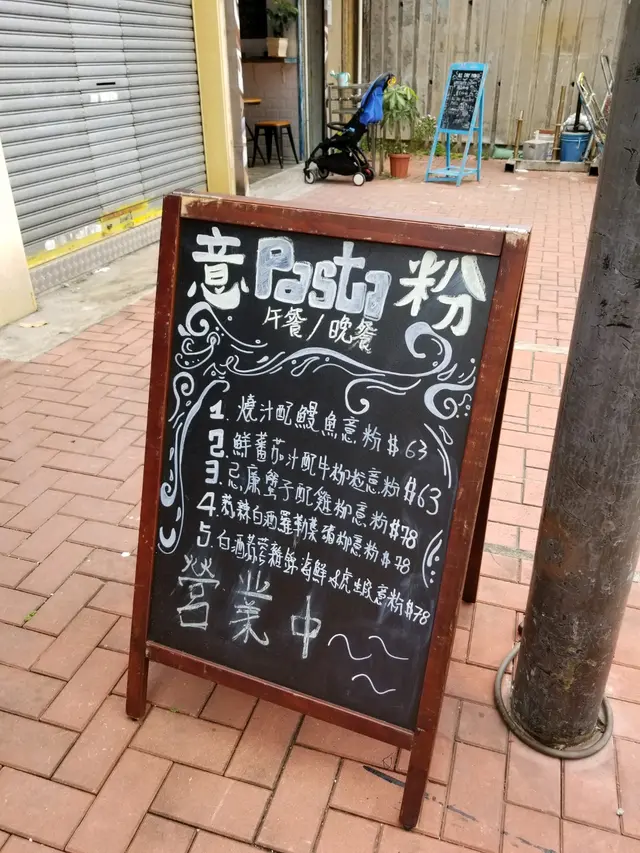 意 Pasta 粉
午餐/晚餐
1. 燒汁配鰻魚意粉 $63
2. 鮮蕃茄汁配牛柳粒意粉 $63
3. 忌廉蟹子配雞柳意粉 $78
4. 白酒羅勒 豬柳意粉 $78
5. 白酒 海鮮 虎蝦意粉 $78
營業中
ALL DAY